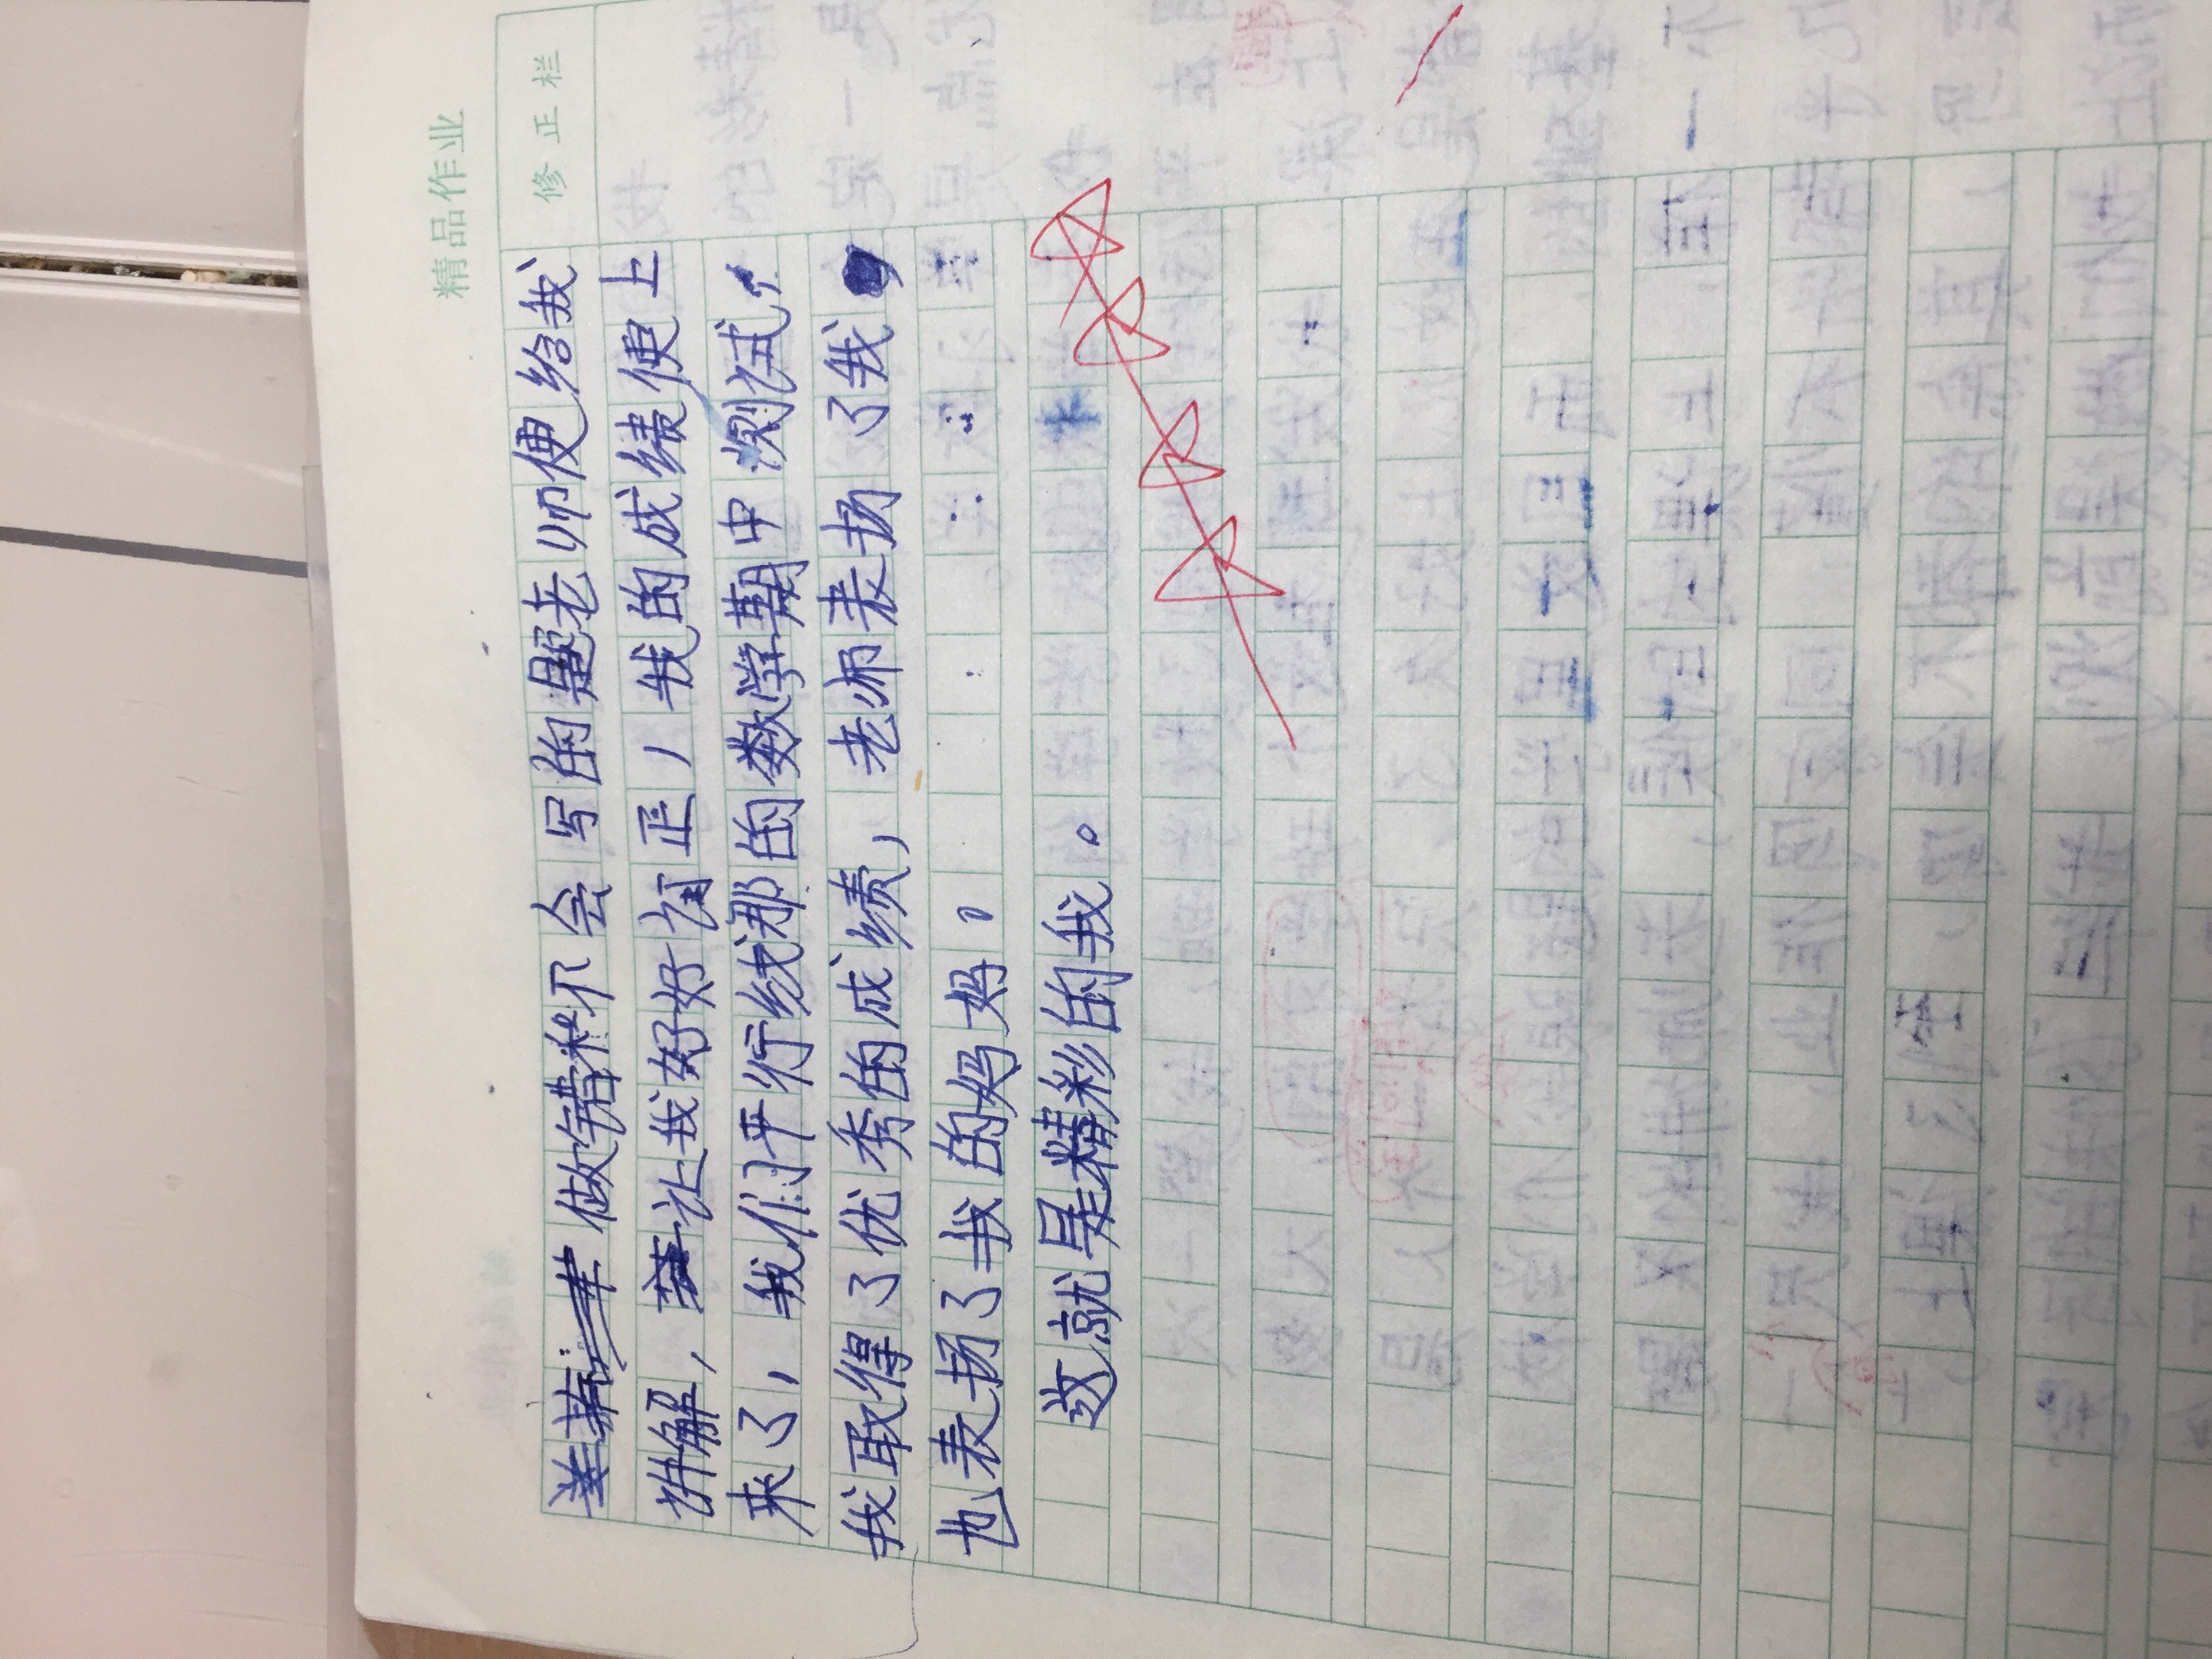 精品作业
修正栏
做错和不会写的题老师便给我
讲解，让我好好订正，我的成绩便上
来了，我们平行线那的数学期中测试，
我取得了优秀的成绩，老师表扬了我
也表扬了我的妈妈。
这就是精彩的我。